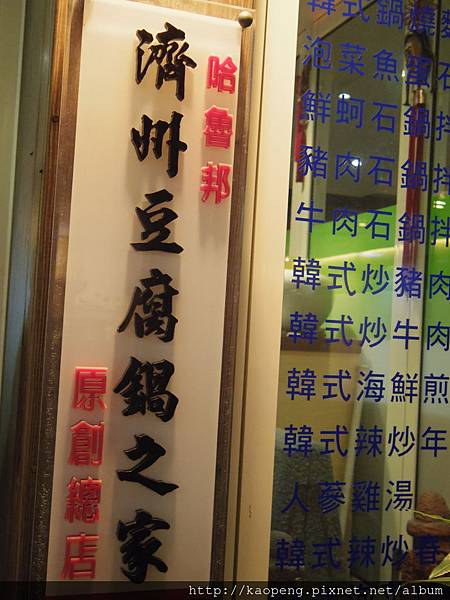 哈魯邦
濟州豆腐鍋之家
原創總店
韓式鍋燒麵
泡菜魚蛋石
鮮蚵石鍋拌
豬肉石鍋拌
牛肉石鍋拌
韓式炒豬肉
韓式炒牛肉
韓式海鮮煎
韓式辣炒年
人蔘雞湯
韓式辣炒春
http://kaopeng.pixnet.net/album